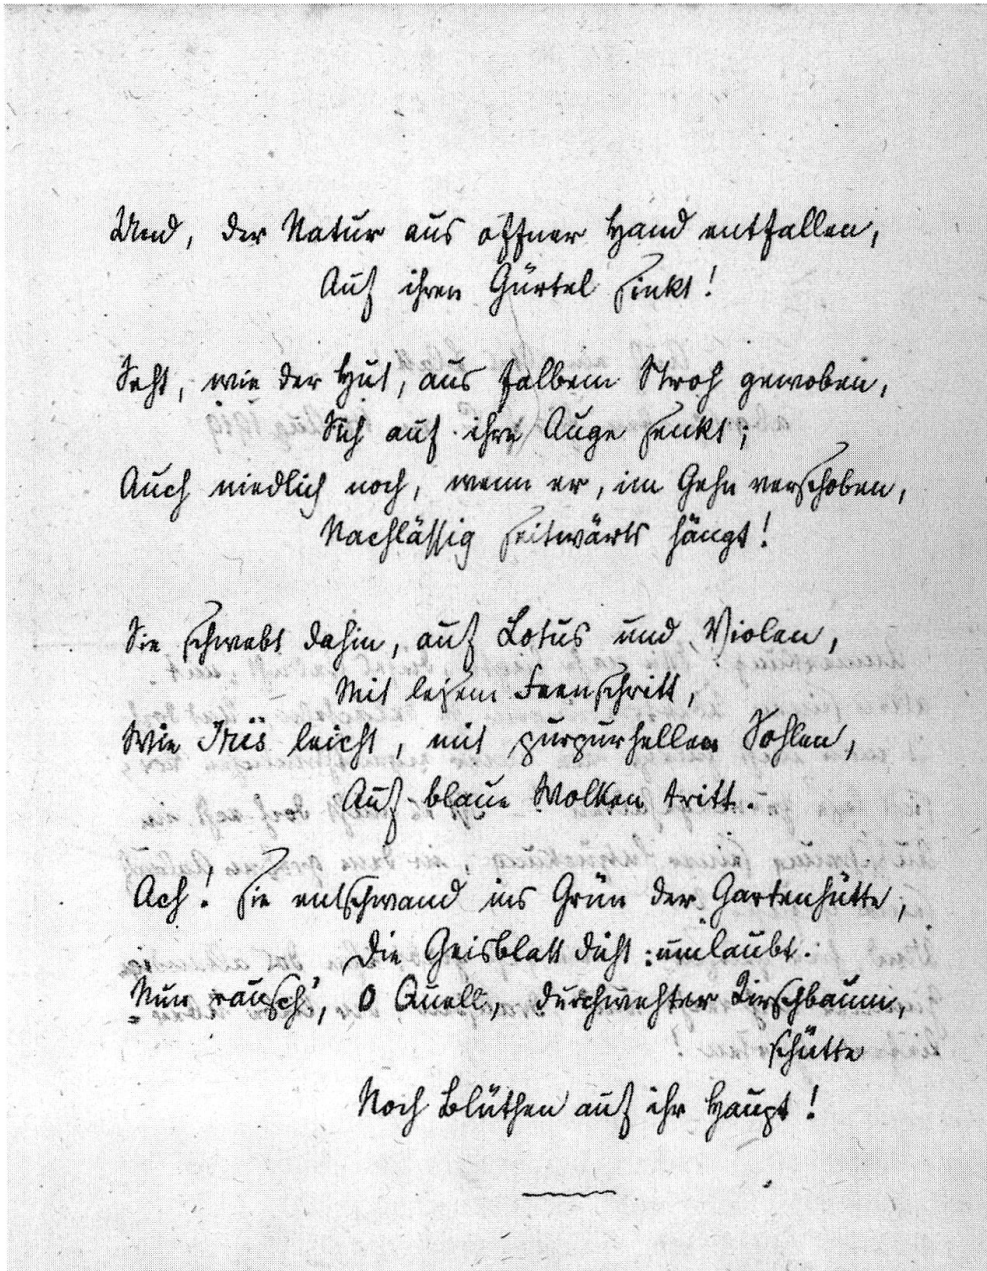 Und, der Natur aus offner Hand entfallen,
Auf ihren Gürtel sinkt!
Seht, wie der Hut, aus falbem Stroh gewoben,
Sich auf ihre Auge senkt,
Auch niedlich noch, wenn er, im Gehn verschoben,
Nachlässig seitwärts hängt!
Sie schwebt dahin, auf Lotus und Violen,
Mit leisem Feenschritt,
Wie Iris leicht, mit purpurhellen Sohlen,
Auf blaue Wolken tritt.
Ach! sie entschwand ins Grün der Gartenhütte,
Die Geisblatt dicht umlaubt.
Nun rausch', o Quell, durchwehter Kirschbaum,
schütte
Noch Blüthen auf ihr Haupt!